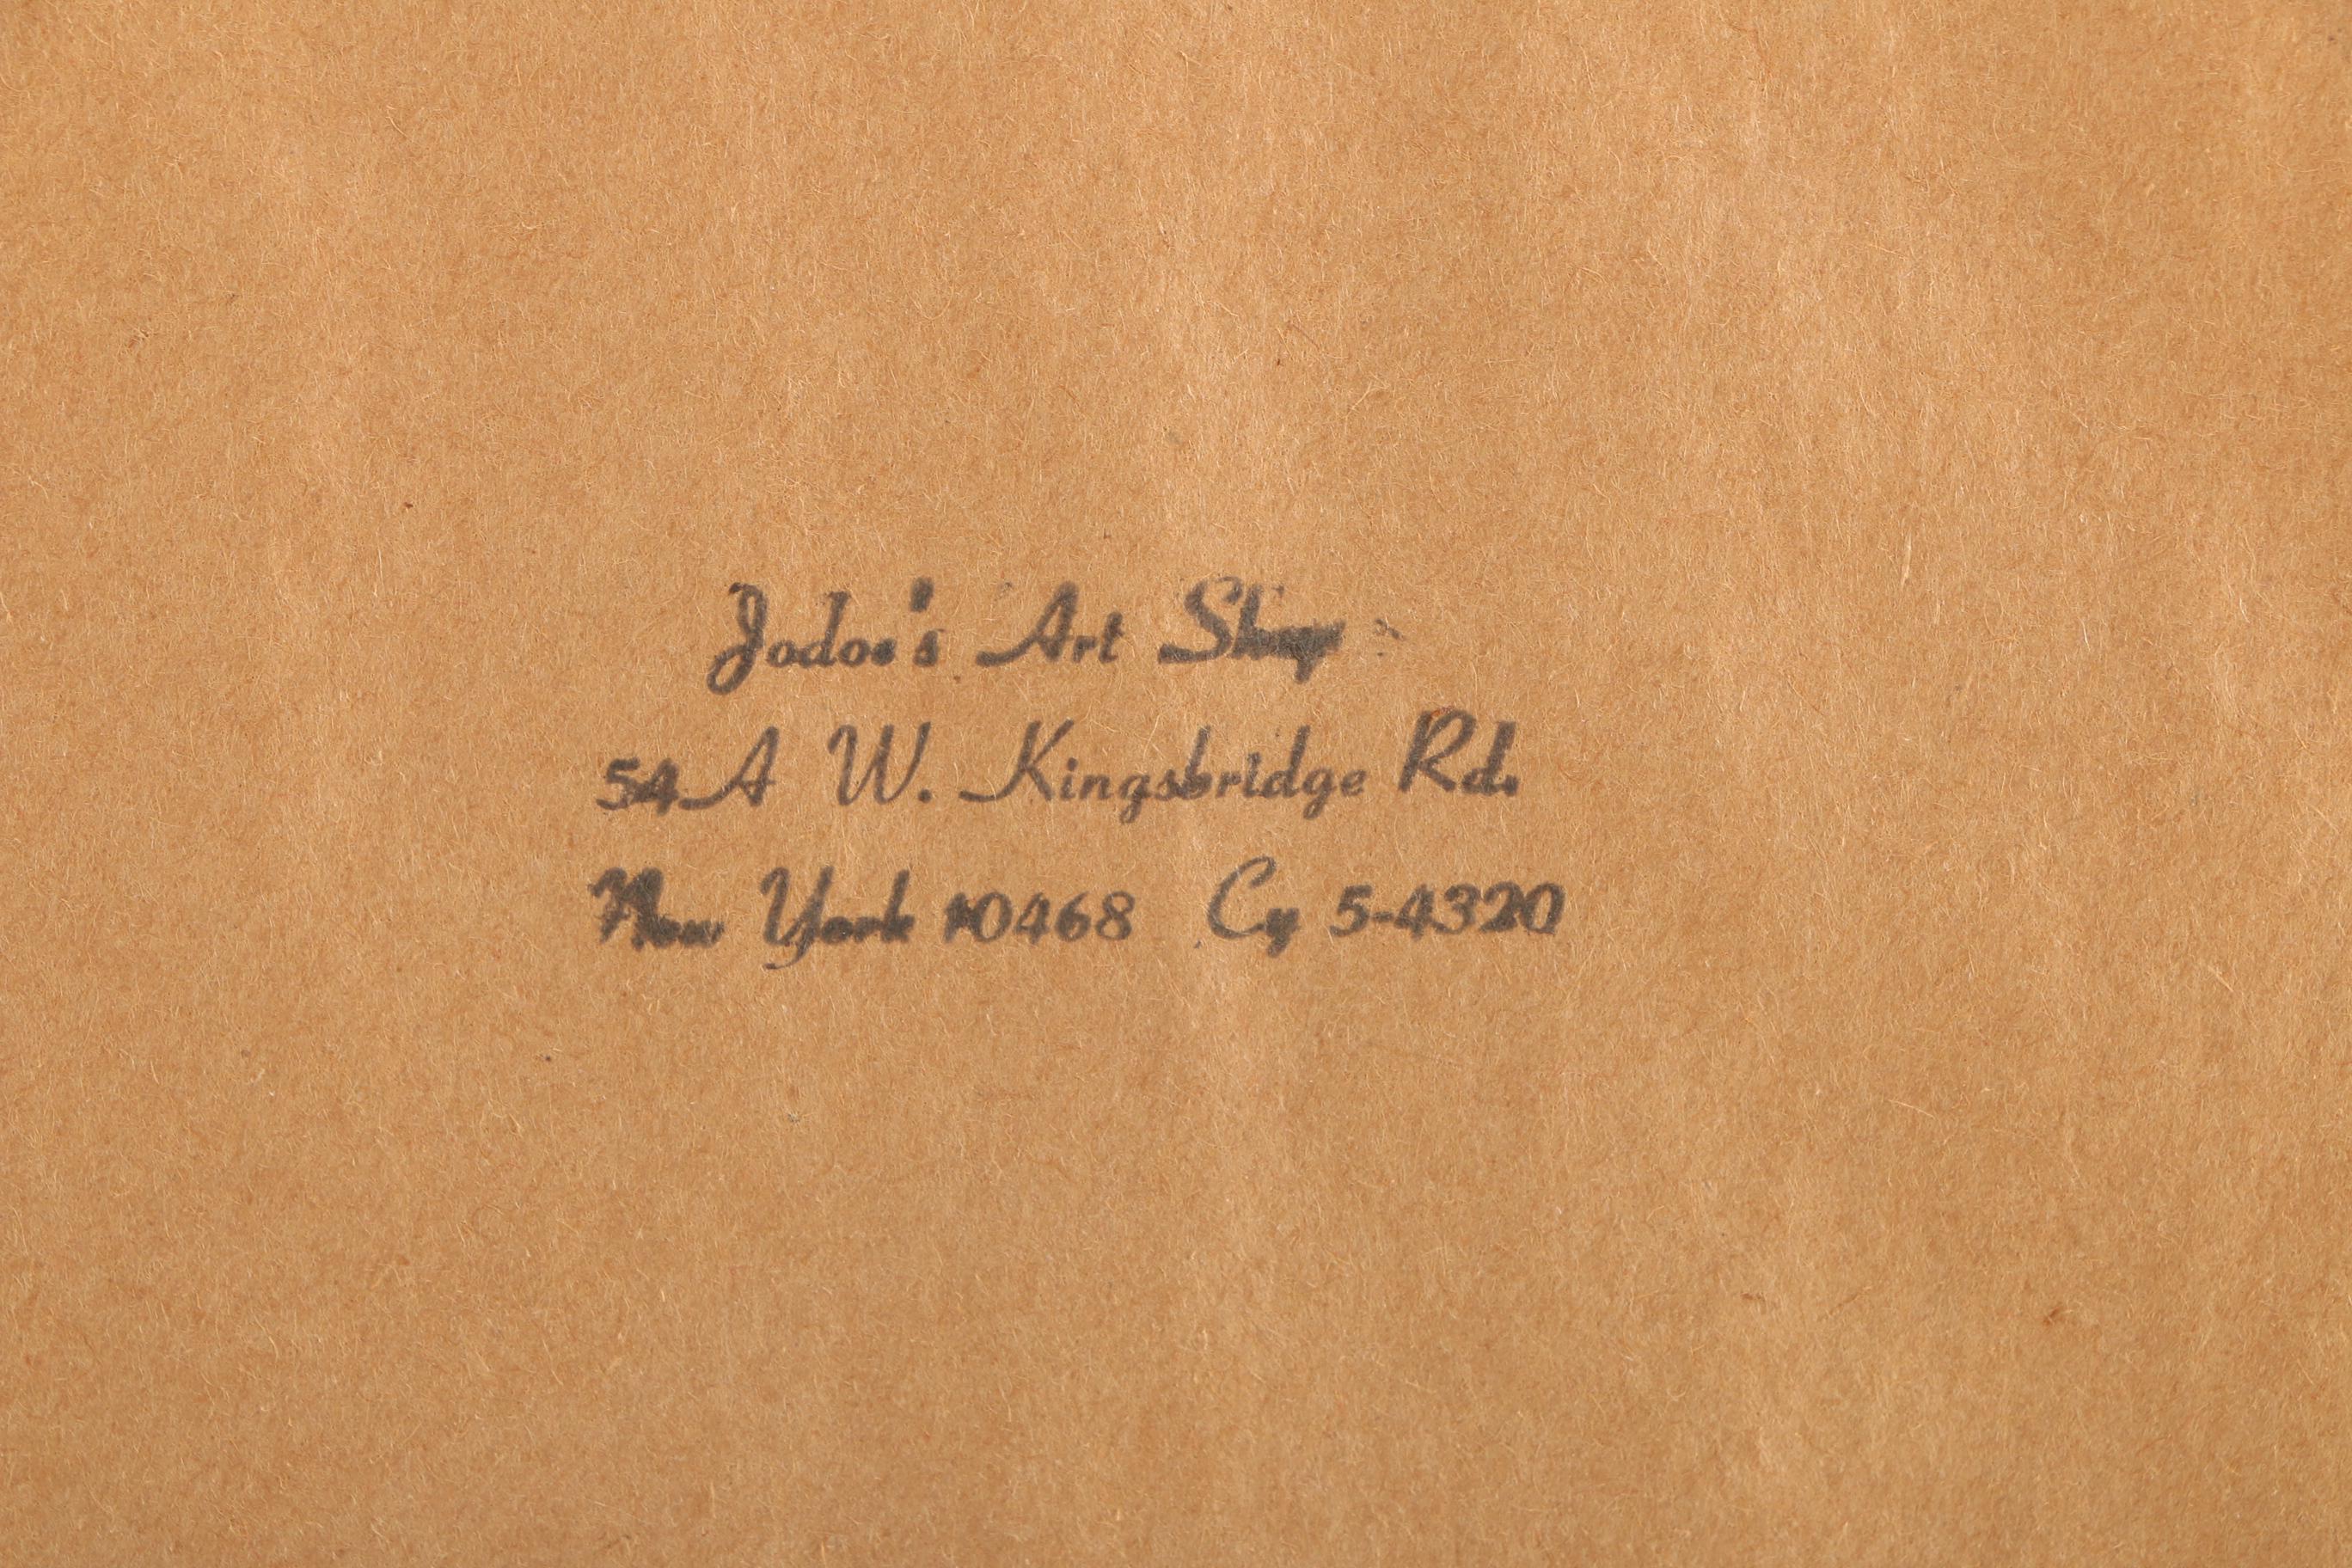 Jodoe's Art Shop
54A W. Kingsbridge Rd.
New York 10468 Cy 5-4320